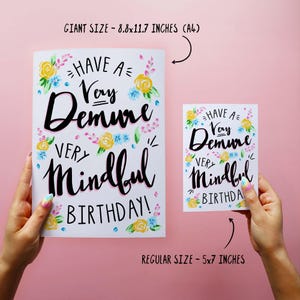 GIANT SIZE - 8.8x11.7 INCHES (A4)
HAVE A
Very
Demure
VERY
Mindful
BIRTHDAY!
HAVE A
Very
Demure
VERY
Mindful
BIRTHDAY
REGULAR SIZE - 5x7 INCHES